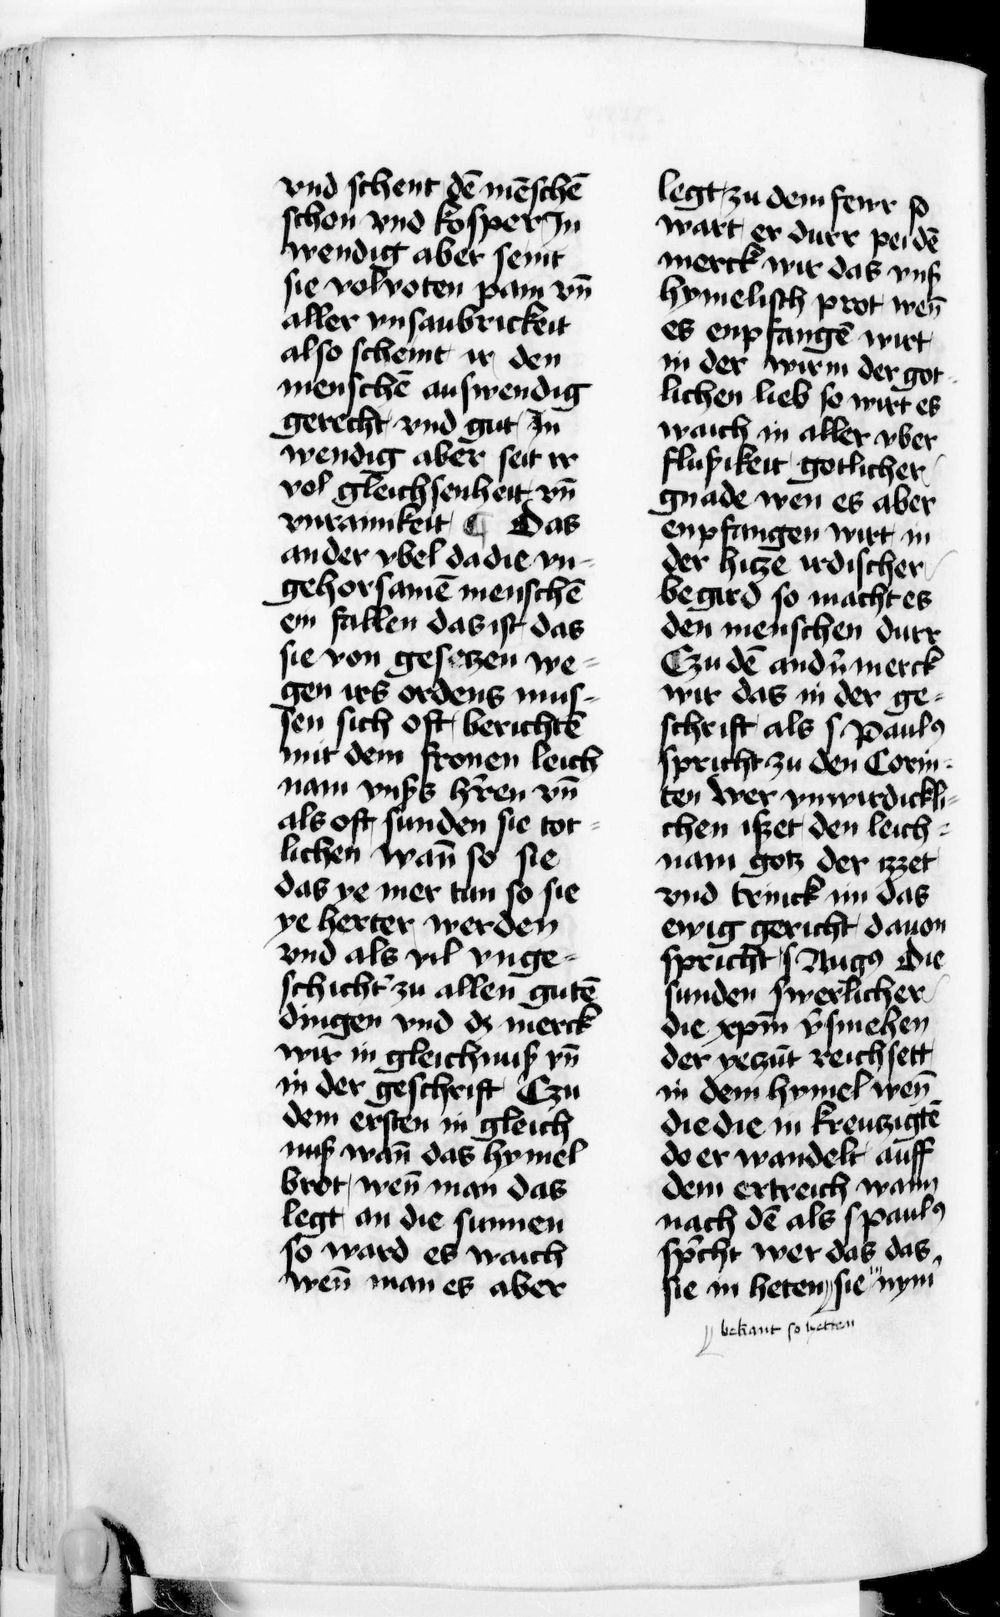 vnd schent dē mēschē
schon vnd kosper In
wendig aber seint
sie vol toten pain vn̄
aller vnsaubrickeit
also scheint ir den
menschē auswendig
gerecht vnd gut In
wendig aber seit ir
vol gleichsenheit vn̄
vnrainikeit ¶ Das
ander vbel da die vn-
gehorsamē menschē
ein fallen das ist das
sie von gesetzen we-
gen irs ordens mus-
sen sich oft berichtē
mit dem fronen leich
nam vnßs hr̄en vn̄
als oft sunden sie tot-
lichen wan̄ so sie
das ye mer tun so sie
ye herter werden
vnd als vil vnge-
schicht' zu allen gutē
dingen vnd dz merck
wir in gleichnuß vn̄
in der geschrift Czu
dem ersten in gleich
nuß wan̄ das hymel
brot wen̄ man das
legt an die sunnen
so ward es waich
wen̄ man es aber
legt zu dem fewr so
wart er durr pei dē
merck wir das vnß
hymelisch prot wen̄
es enpfangē wirt
in der wirm der got-
lichen lieb so wirt es
waich in aller vber
flußikeit gotlicher
gnade wen es aber
enpfangen wirt in
der hitze irdischer
begird so macht es
den menschen durr
Czu dē andn̄ merck
wir das in der ge-
schrift als s Paulꝰ
spricht zu den Corin-
ten Wer vnwirdickli-
chen ißet den leich-
nam gotz der izzet
vnd trinck im das
ewig gericht dauon
spricht s Augꝰ Die
sunden swerlicher
die xpm̄ v̄smehen
der yeczūt reichsett
in dem hymel wen̄
die die in kreutzigtē
do er wandelt auff
dem ertreich wann
nach dē als s paulꝰ
sp̄cht wer das das
sie in heten sie in nym̄
bekant so hetten